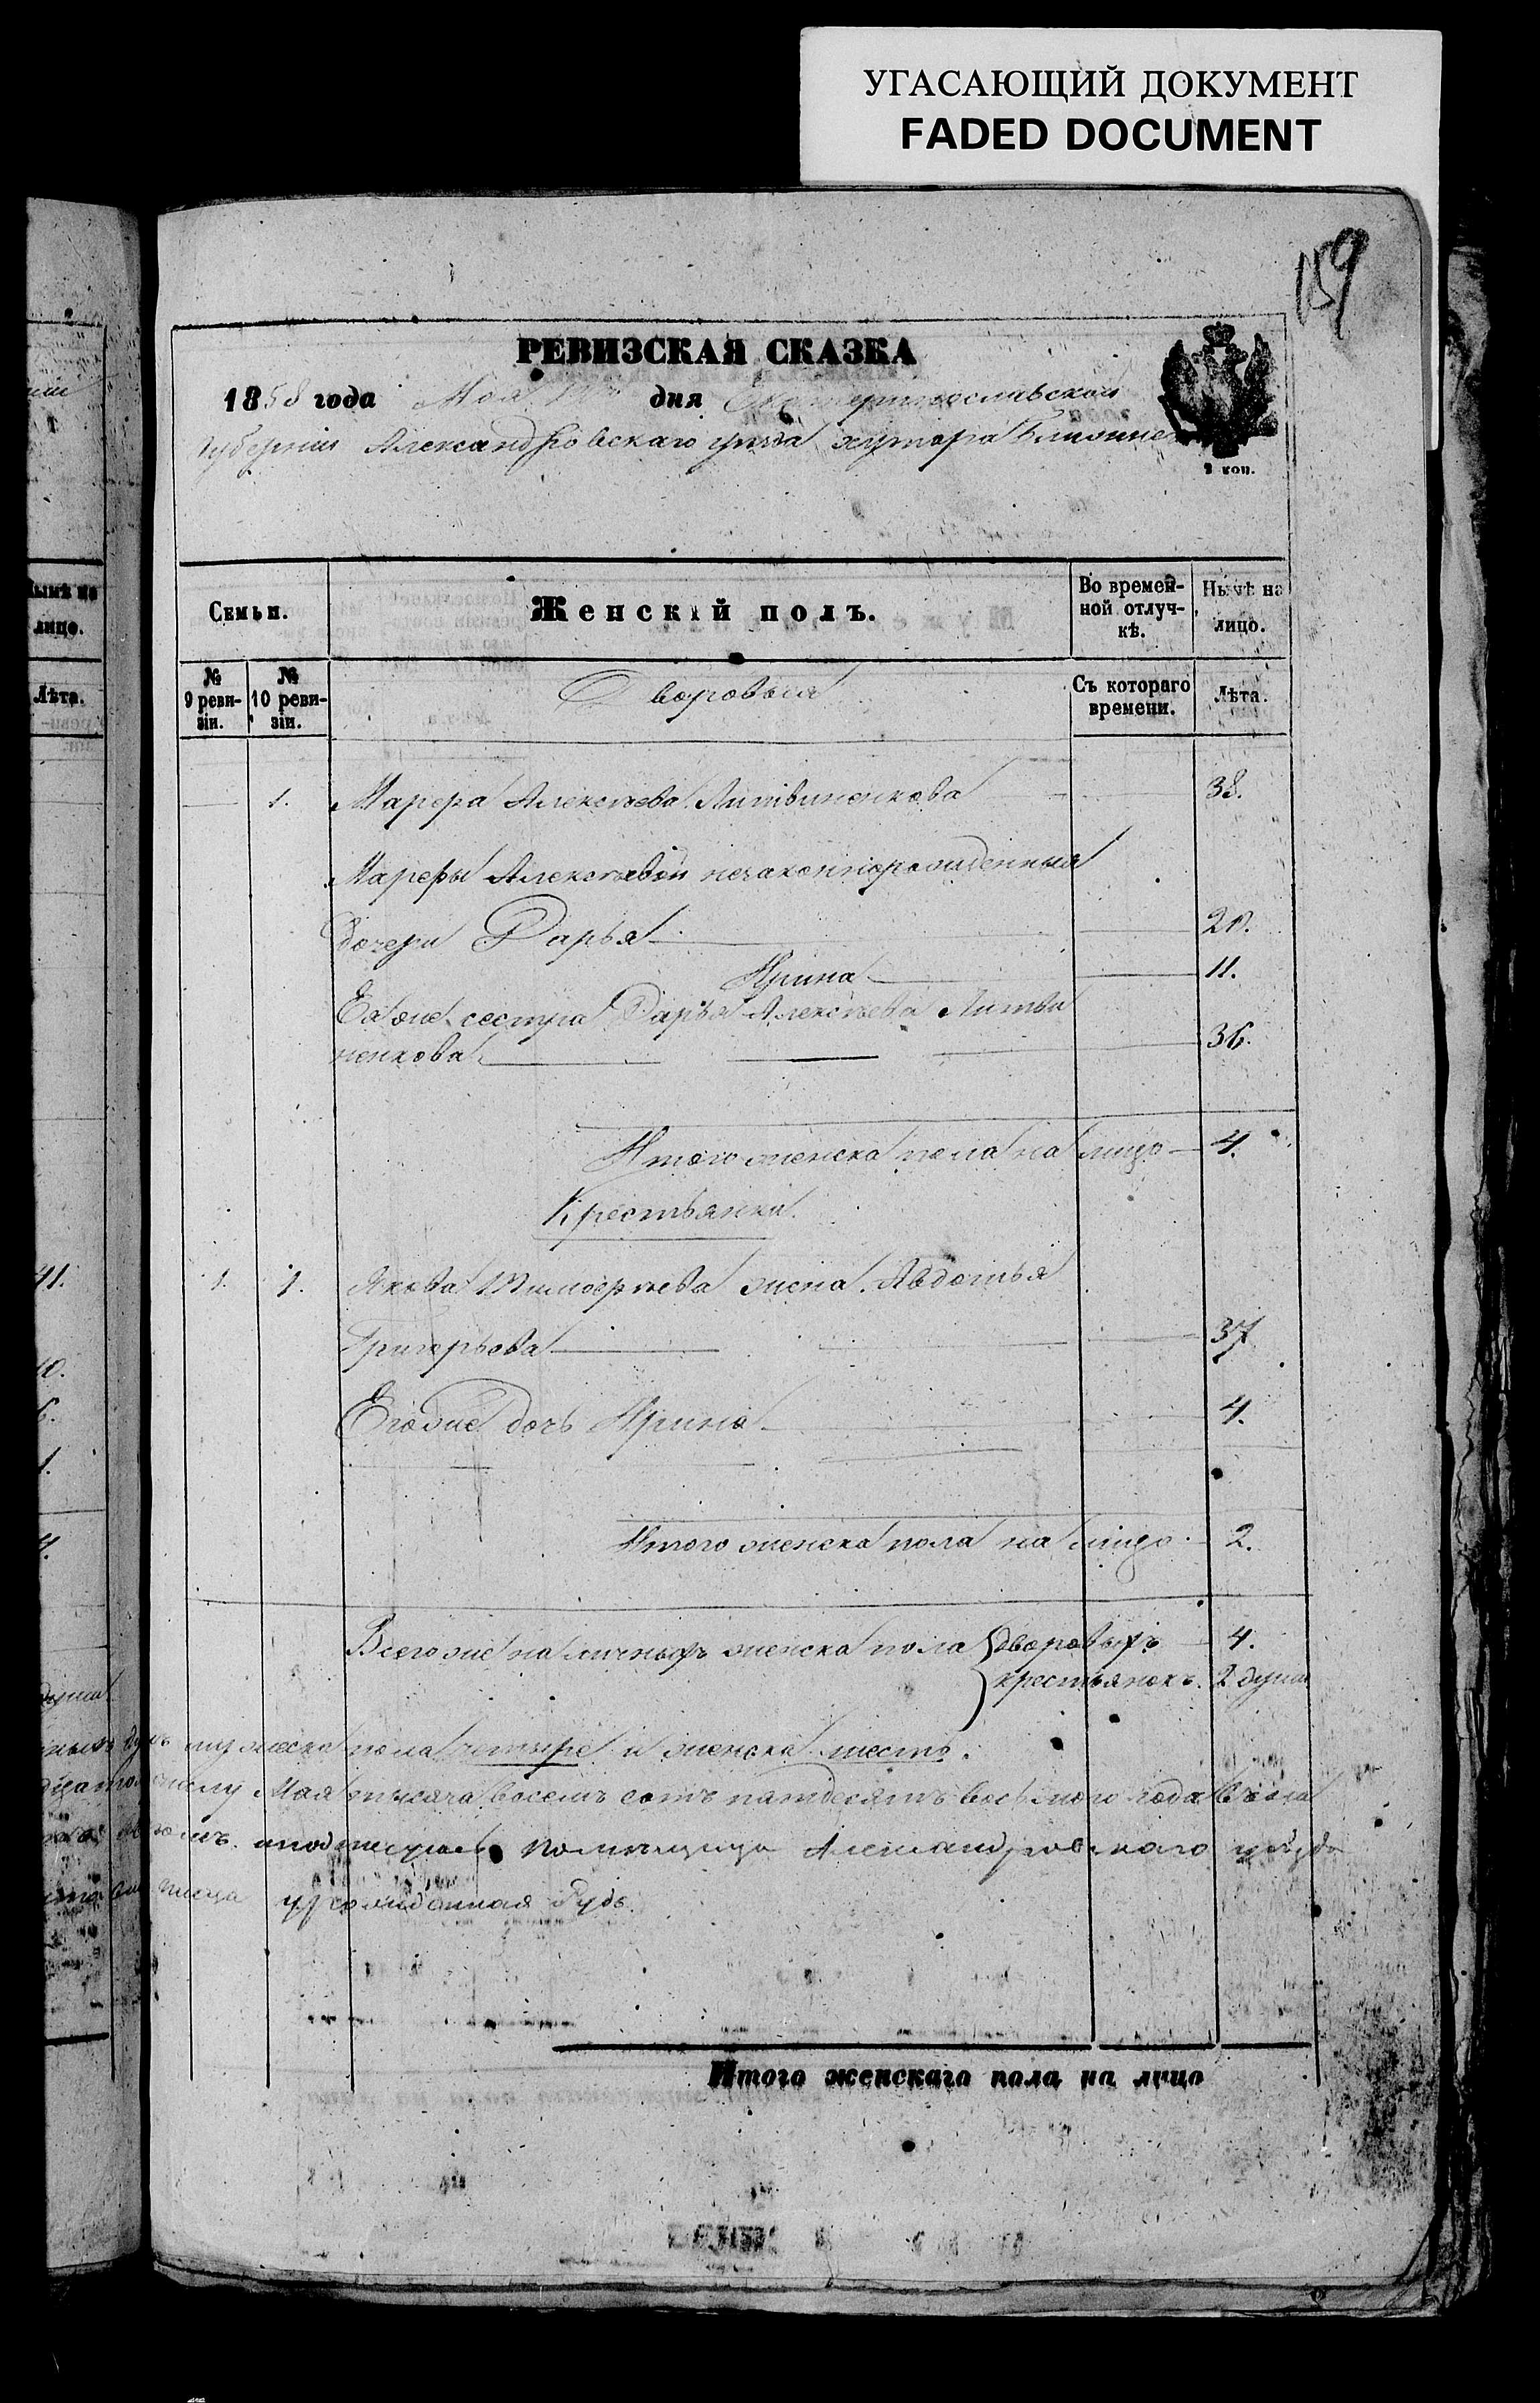 УГАСАЮЩИЙ ДОКУМЕНТ
FADED DOCUMENT
159
РЕВИЗСКАЯ СКАЗКА
1858 года Мая дня Екатеринославской
губернии Александровскаго уезда хутора
2 коп.
Семьи.
Женскій полъ.
Во времен-
ной отлуч-
кѣ.
Нынѣ на
лицо.
№
9 реви-
зіи.
№
10 реви-
зіи.
Дворовыя
Съ котораго
времени.
Лѣта.
1. Марфа Алексѣева Литвиненкова 38.
Марфы Алексѣевой незаконнорожденныя
дочери Дарья 20.
Ирина 11.
Ея же сестра Дарья Алексѣева Литви
ненкова 36.
Итого женска пола на лицо 4.
Крестьянки
1. 1. Якова Тимофѣева жена Авдотья
Григорьева 37
Егоже дочь Ирина 4.
Итого женска пола на лицо 2.
Всегоже наличныхъ женска пола дворовыхъ 4.
крестьянокъ. 2 душы
мужеска пола четыре и женска шесть.
Мая тысяча восемъ сотъ пятдесятъ восьмого года
помѣщица Александровского уѣзда
урожденная Рудь.
Итого женскаго пола на лицо
нынѣ на
лицо.
Лѣта.
41.
10.
6.
1.
4.